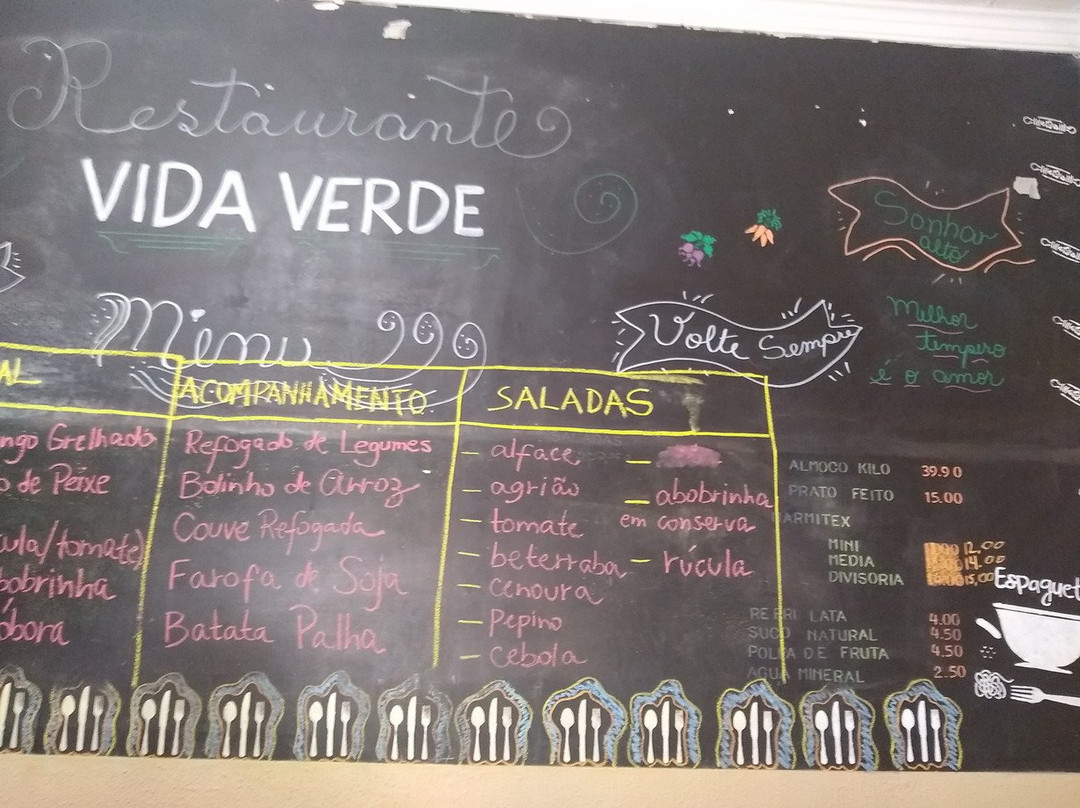 Restaurante
VIDA VERDE
Sonhar
alto
Menu
Volte Sempre
Melhor
tempero
é o amor
AL
ngo Grelhado
o de Peixe
cula/tomate)
bobrinha
óbora
ACOMPANHAMENTO
Refogado de Legumes
Bolinho de Arroz
Couve Refogada
Farofa de Soja
Batata Palha
SALADAS
- alface
- agrião
- tomate
- beterraba
- cenoura
- Pepino
- cebola
- abobrinha
em conserva
- rúcula
ALMOCO KILO 39.90
PRATO FEITO 15.00
ARMITEX
MINI 12,00
MEDIA 14.00
DIVISORIA 15,00
REFRI LATA 4.00
SUCO NATURAL 4.50
POLPA DE FRUTA 4.50
AGUA MINERAL 2.50
Espaguet